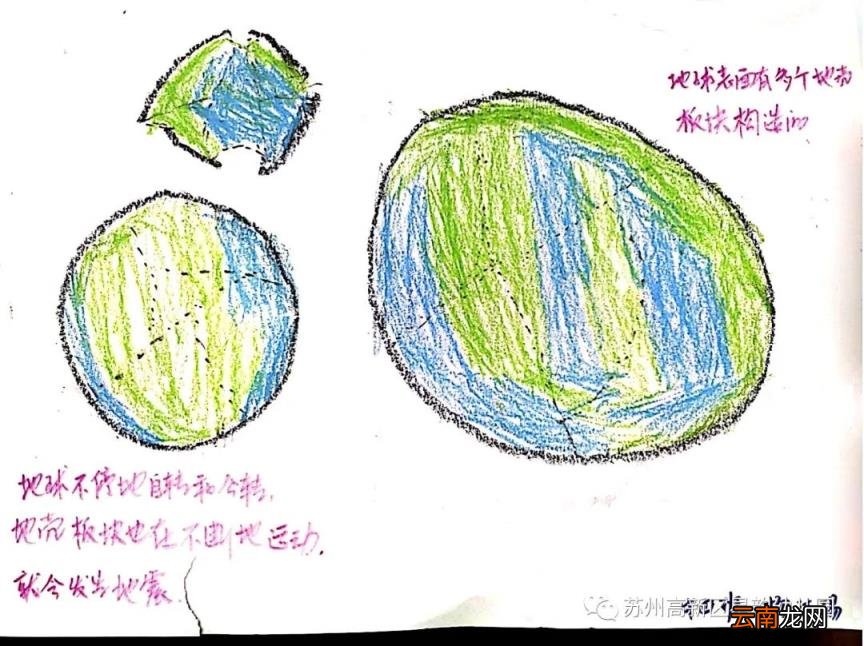 地球表面有多个地壳
板块构造的
地球不停地自转和公转,
地壳板块也在不断地运动.
就会发生地震
苏州高新区
云南龙网